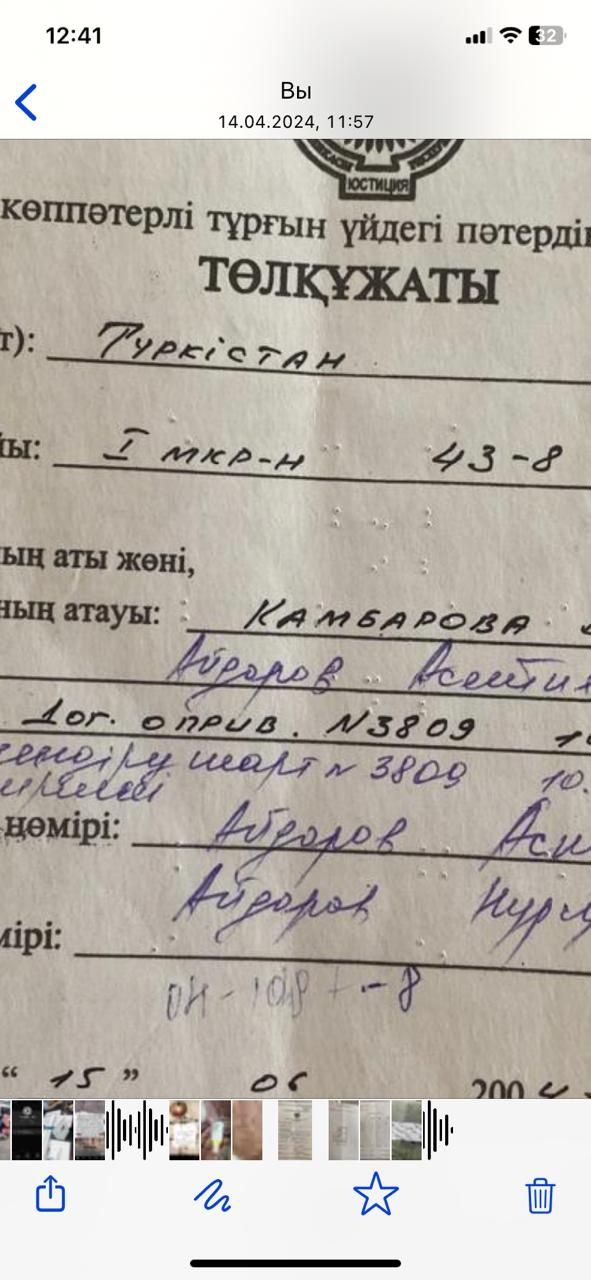 12:41
32
Вы
14.04.2024, 11:57
ЮСТИЦИЯ
көппәтерлі тұрғын үйдегі пәтердің
ТӨЛҚҰЖАТЫ
т): Түркістан
ы: I мкр-н 43-8
ың аты жөні,
ның атауы: КАМБАРОВА
Айдаров
Дог. о прив. N3809
шарт N 3809 10.
нөмірі: Айдаров
Айдаров
мірі:
-8
“ 15 ” 06 200